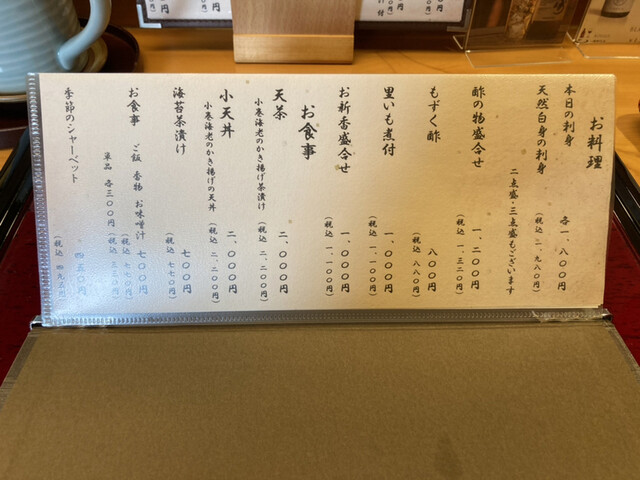 お料理
本日の刺身 各一、八〇〇円
天然白身の刺身 (税込 二、九八〇円)
二点盛・三点盛もございます
酢の物盛合せ 一、二〇〇円
(税込 一、三二〇円)
もずく酢 八〇〇円
(税込 八八〇円)
里いも煮付 一、〇〇〇円
(税込 一、一〇〇円)
お新香盛合せ 一、〇〇〇円
(税込 一、一〇〇円)
お食事
天茶 二、〇〇〇円
小巻海老のかき揚げ茶漬け (税込 二、二〇〇円)
小天丼 二、〇〇〇円
小巻海老のかき揚げの天丼 (税込 二、二〇〇円)
海苔茶漬け 七〇〇円
(税込 七七〇円)
お食事 ご飯 香物 お味噌汁 七〇〇円
(税込 七七〇円)
単品 各三〇〇円 (税込 三三〇円)
季節のシャーベット 四五〇円
(税込 四九五円)